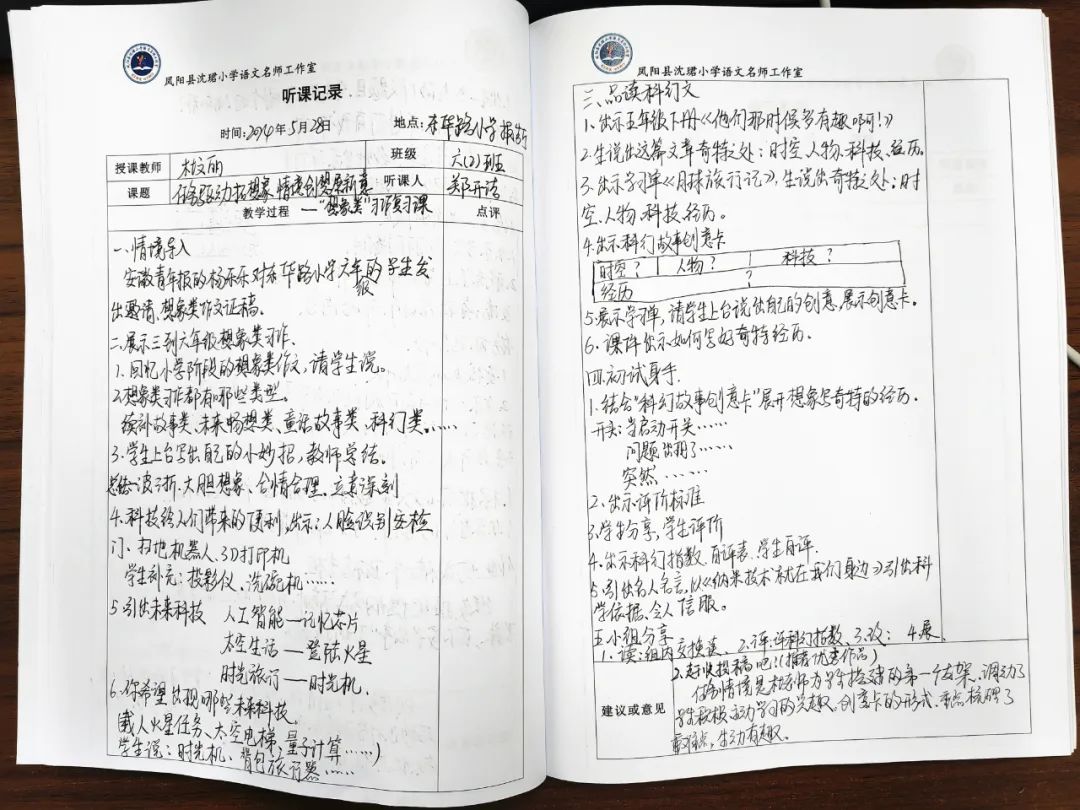 凤阳县沈珺小学语文名师工作室
听课记录
时间:2024年5月28日 地点:东华路小学报告厅
授课教师 班级 六(2)班
课题 任务驱动拓想象 情境创想展新意 听课人 郑开洁
教学过程 —“想象类”习作复习课 点评
一、情境导入
安徽青年报的杨乐乐对东华路小学六年级的学生发
出邀请、想象类作文证稿。
二、展示三到六年级想象类习作、
1、回忆小学阶段的想象类作文,请学生说。
2.想象类习作都有哪些类型。
续补故事类、未来畅想类、童话故事类、科幻类、……
3、学生上台写出自己的小妙招,教师总结。
总结:一波三折、大胆想象、合情合理、立意深刻
4、科技给人们带来的便利,出示:人脸识别安检
门、扫地机器人、3D打印机
学生补充:投影仪、洗碗机……
5、引出未来科技 人工智能—记忆芯片
太空生活——登陆火星
时光旅行——时光机、
6、你希望出现哪些未来科技。
(载人火星任务、太空电梯、量子计算……)
学生说:时光机、背包旅行器……
三、品读科幻文
1、出示五年级下册《他们那时候多有趣啊!》
2、生说出这篇文章奇特之处:时空、人物、科技、经历、
3、出示学习单《月球旅行记》,生说出奇特之处:时
空、人物、科技、经历。
4、出示科幻故事创意卡
时空? 人物? 科技?
经历 ?
5、展示学习单,请学生上台说出自己的创意、展示创意卡。
6、课件出示如何写好奇特经历.
四、初试身手.
1、结合“科幻故事创意卡”展开想象写奇特的经历.
开头:当启动开关……
问题出现了……
突然……
2、出示评价标准
3、学生分享,学生评价
4、出示科幻指数、自评表、学生自评.
5、引出名人名言,以《纳米技术就在我们身边》引出科
学依据、令人信服。
五、小组分享
1、读:组内交换读 2、评:评科幻指数、3、改: 4、展、
2、赶快投稿吧!(推荐优秀作品)
建议或意见
任务情境是老师为学生搭建的第一个支架、调动了
学生积极主动学习的兴趣、创意卡的形式、
重难点,生动有趣、